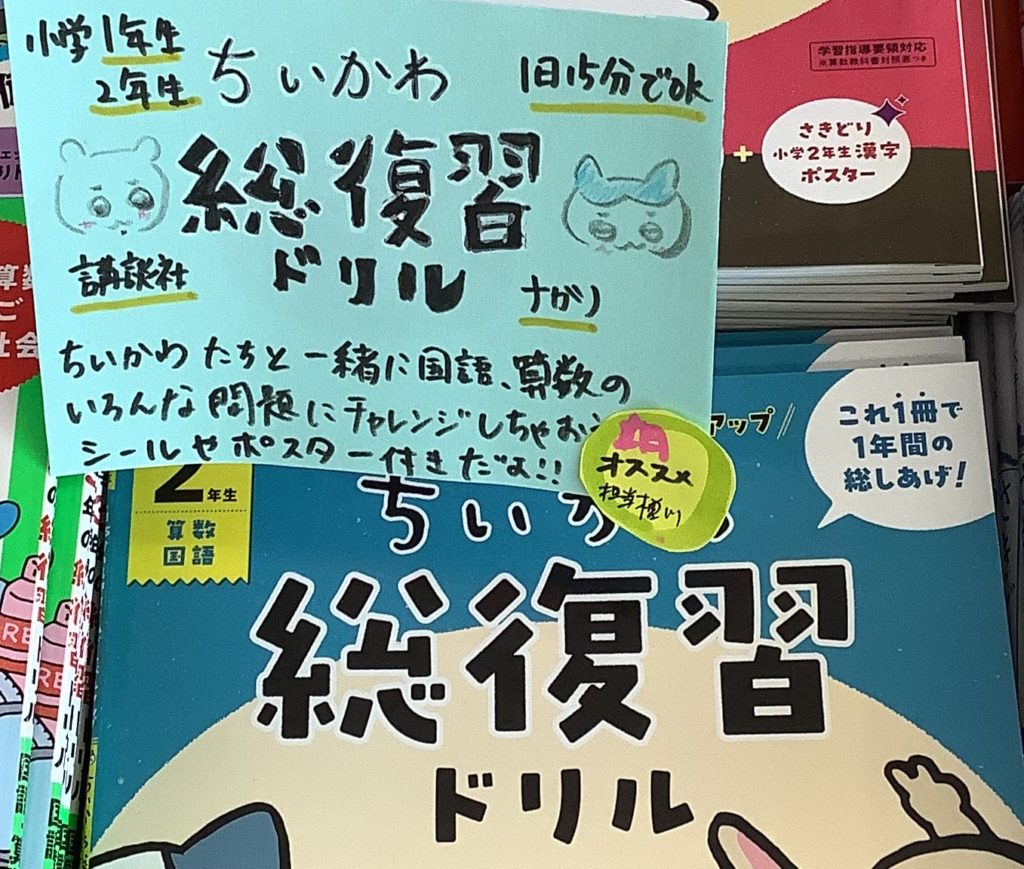 小学1年生
2年生
ちいかわ
1日15分でOK
総復習
ドリル
講談社
さがり
ちいかわたちと一緒に国語、算数の
いろんな問題にチャレンジしちゃおう
シールやポスター付きだよ!!
オススメ
学習指導要領対応
※算数教科書対照表つき
+
さきどり
小学2年生漢字
ポスター
アップ
これ1冊で
1年間の
総しあげ!
2年生
算数
国語
ちいか
総復習
ドリル
算数
社会